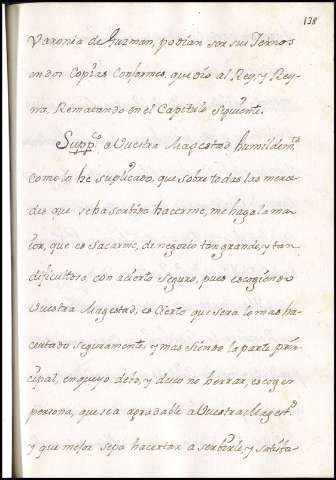 138
Varonia de Guzman, podian ser sus Yernos
en dos Copias Conformes, que dio al Rey, y Rey-
na, Rematando en el Capitulo siguiente.
Suppco a Vuestra Magestad humildemte
como lo he suplicado, que sobre todas las merce-
des que se ha serbido hacerme, me haga la ma-
ior, que es sacarme, de negocio tan grande, y tan
dificultoso, con acierto seguro, pues escogiendo
Vuestra Magestad, es Cierto que sera lo mas ha-
certado seguramente, y mas siendo la parte prin-
cipal, en quyo deseo, y no herrar, escoger
persona, que sea agradable a Vuestra Magestd
y que mejor sepa hacertar a serbirle, y satisfa-